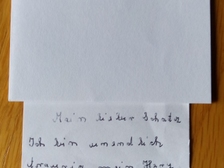 Mein lieber Schatz
Ich bin unendlich
traurig mein Herz